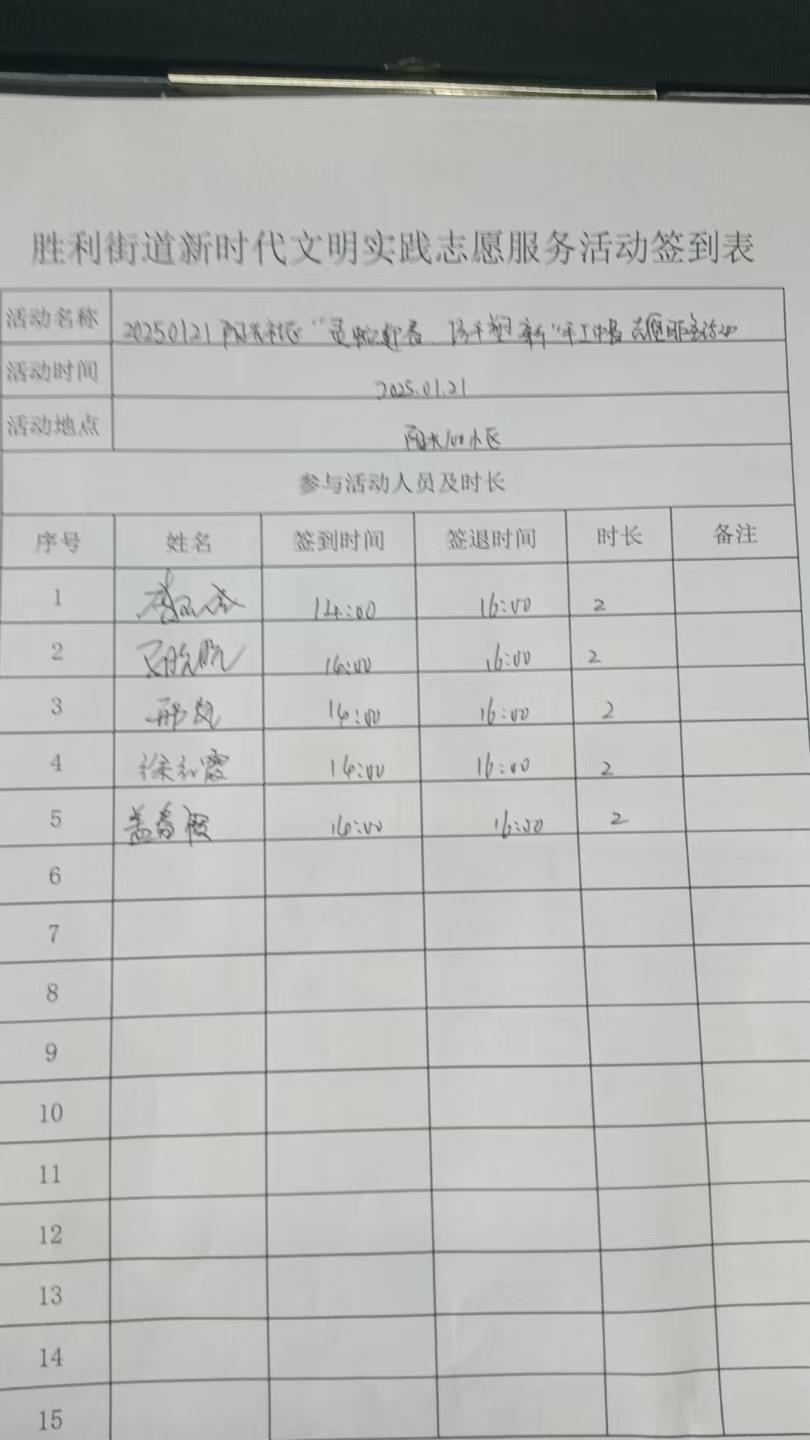 胜利街道新时代文明实践志愿服务活动签到表
活动名称 20250121阳光社区“灵蛇迎春 巧手塑新”手工 志愿服务活动
活动时间 2025.01.21
活动地点 阳光100小区
参与活动人员及时长
序号 姓名 签到时间 签退时间 时长 备注
1 14:00 16:00 2
2 14:00 16:00 2
3 邢岚 14:00 16:00 2
4 徐红霞 14:00 16:00 2
5 盖春霞 14:00 16:00 2
6
7
8
9
10
11
12
13
14
15